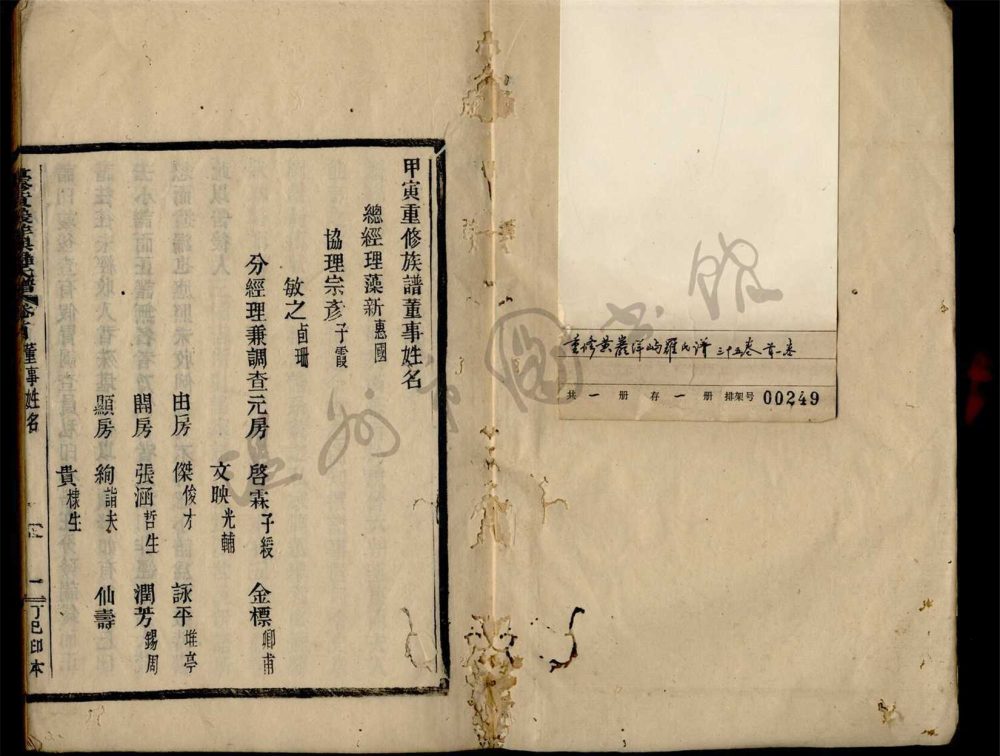 重修黃巖洋嶼羅氏譜 三十五卷 首一卷
共 一 冊 存 一 冊 排架号 00249
溫州市圖書館
甲寅重修族譜董事姓名
總經理藻新惠國
協理宗彥子霞
敏之卣珊
分經理兼調查元房 啓霖子綬 金標卿甫
文映光輔
由房 傑俊才 詠平堆亭
開房 張涵哲生 潤芳錫周
顯房 絢詣夫 仙壽
貴棣生
羅氏譜 卷首 董事姓名 一 丁巳印本